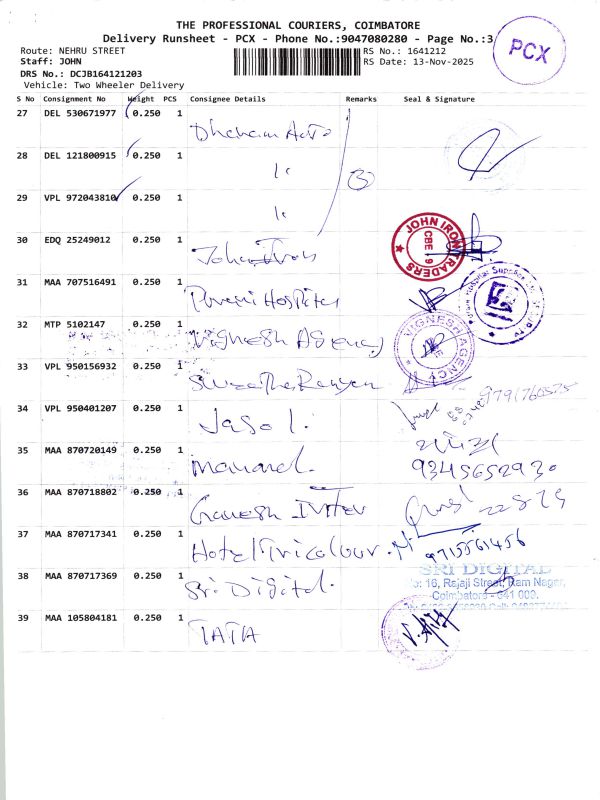 THE PROFESSIONAL COURIERS, COIMBATORE
Delivery Runsheet - PCX - Phone No.:9047080280 - Page No.:3
PCX
Route: NEHRU STREET
RS No.: 1641212
Staff: JOHN
RS Date: 13-Nov-2025
DRS No.: DCJB164121203
Vehicle: Two Wheeler Delivery
S No Consignment No Weight PCS Consignee Details Remarks Seal & Signature
27 DEL 530671977 0.250 1
28 DEL 121800915 0.250 1
3
29 VPL 972043810 0.250 1
30 EDQ 25249012 0.250 1 John Iron
JOHN IRON TRADERS
CBE 9
31 MAA 707516491 0.250 1 Hospital
32 MTP 5102147 0.250 1 Vignesh Agency
VIGNESH AGENCY
33 VPL 950156932 0.250 1
9791760575
34 VPL 950401207 0.250 1
35 MAA 870720149 0.250 1
9345652930
36 MAA 870718802 0.250 1 Ganesh
37 MAA 870717341 0.250 1 Hotel Tricolour
9715561456
38 MAA 870717369 0.250 1 Sri Digital
SRI DIGITAL
16, Rajaji Street, Ram Nagar,
Coimbatore - 641 009.
39 MAA 105804181 0.250 1 TATA